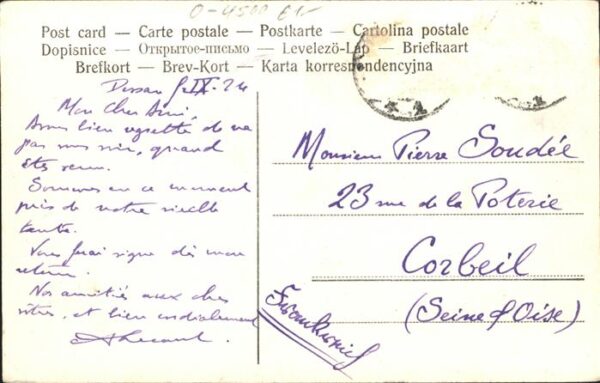 Post card — Carte postale — Postkarte — Cartolina postale
Dopisnice — Открытое-письмо — Levelező-Lap — Briefkaart
Brefkort — Brev-Kort — Karta korrespondencyjna
IX. 24
Mon Cher Ami,
Avons bien regretté de ne
pas vous voir, quand
êtes venu.
Sommes en ce moment
près de notre vieille
tante.
Vous ferai signe dès mon
retour.
Nos amitiés aux chers
vôtres, et bien cordialement
Monsieur Pierre Soudée
23 rue de la Poterie
Corbeil
(Seine & Oise)